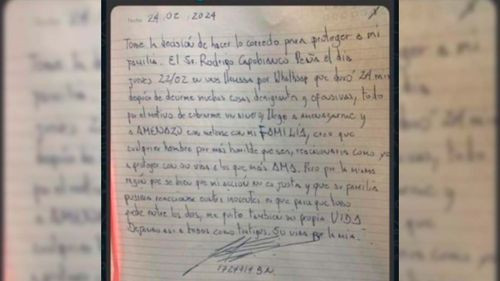 Fecha 24.02 2024
Tome la decisión de hacer lo correcto para proteger a mi
familia. El Sr. Rodrigo Capobianco Peña el día
jueves 22/02 en una llamada por Whatsapp que duró 24 min
después de decirme muchas cosas denigrantes y ofensivas, todo
por el motivo de cobrarme un y llego a amenazarme y
a AMENAZO con meterse con mi FAMILIA, creo que
cualquier hombre por más humilde que sea, reaccionaria como yo
a proteger con su vida a los que más AMA. Pero por la misma
razón que se bien que mi acción no es justa y que su familia
pudiera reaccionar contra inocentes es que para que
entre los dos, me quito también mi propia VIDA
a todos como testigos. Su vida por la mia.